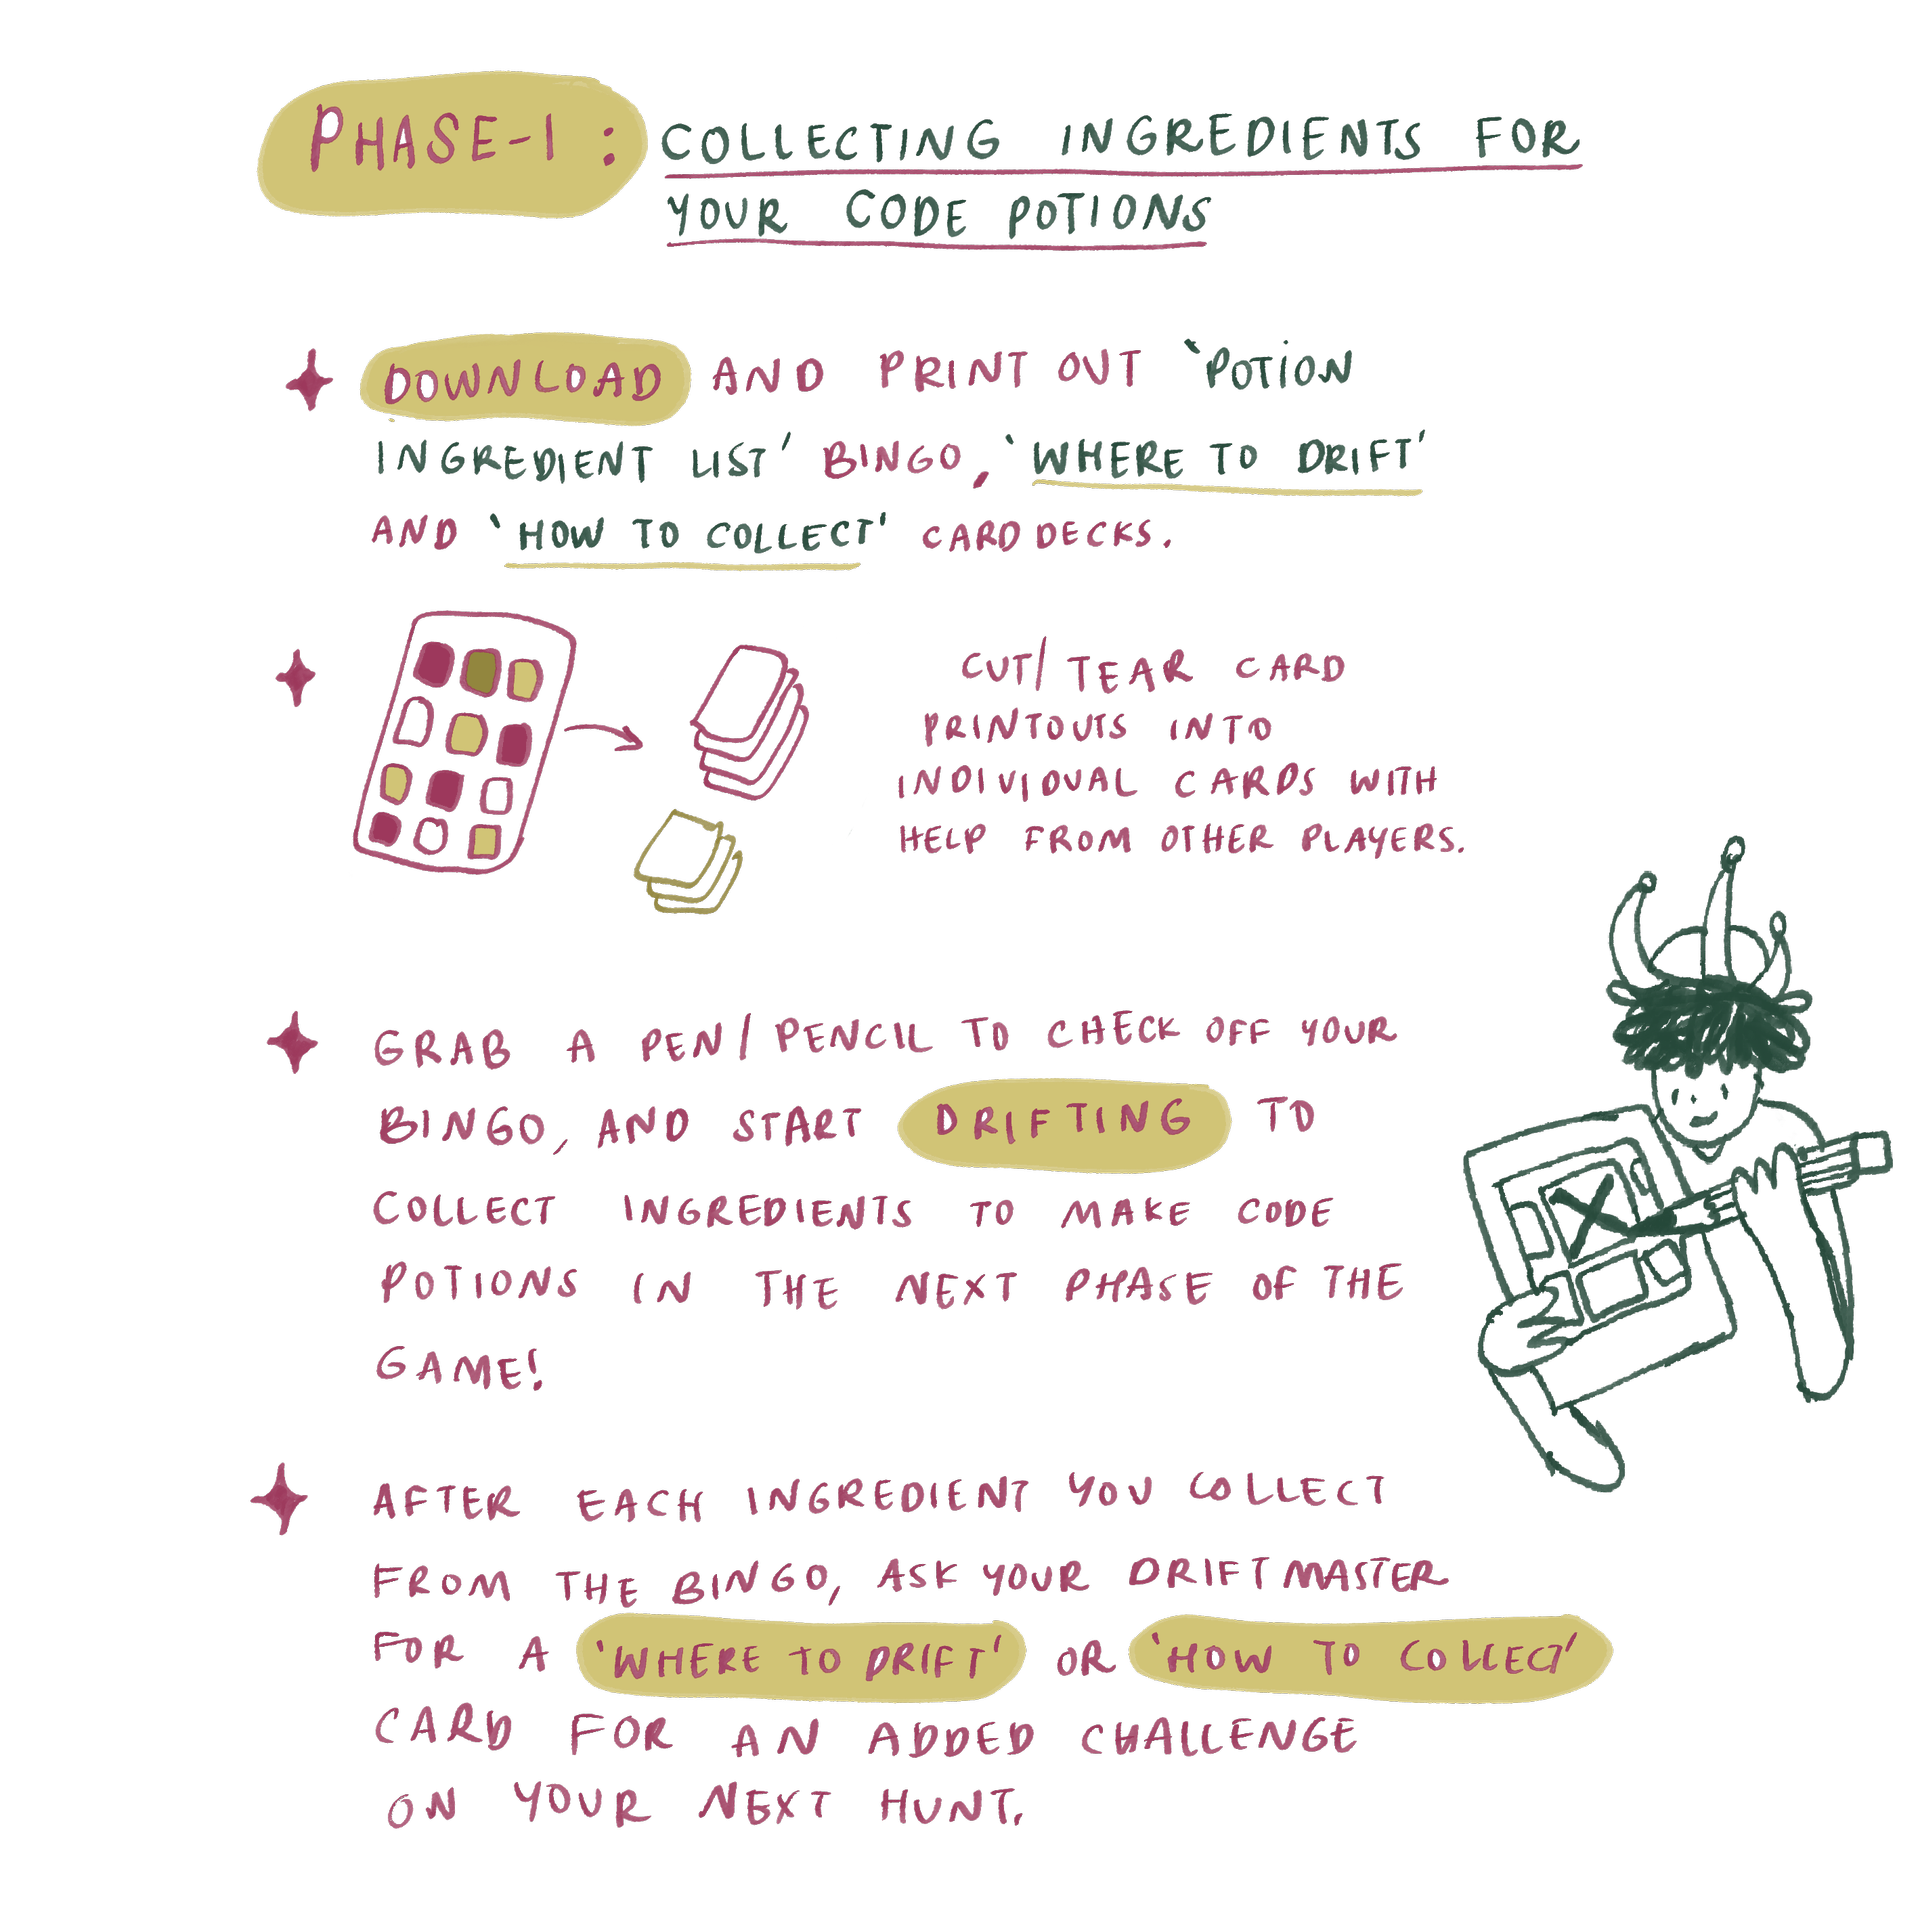 PHASE-1 : COLLECTING INGREDIENTS FOR
YOUR CODE POTIONS
DOWNLOAD AND PRINT OUT 'POTION
INGREDIENT LIST' BINGO, 'WHERE TO DRIFT'
AND 'HOW TO COLLECT' CARD DECKS.
CUT/TEAR CARD
PRINTOUTS INTO
INDIVIDUAL CARDS WITH
HELP FROM OTHER PLAYERS.
GRAB A PEN/PENCIL TO CHECK OFF YOUR
BINGO, AND START DRIFTING TO
COLLECT INGREDIENTS TO MAKE CODE
POTIONS IN THE NEXT PHASE OF THE
GAME!
AFTER EACH INGREDIENT YOU COLLECT
FROM THE BINGO, ASK YOUR DRIFTMASTER
FOR A 'WHERE TO DRIFT' OR 'HOW TO COLLECT'
CARD FOR AN ADDED CHALLENGE
ON YOUR NEXT HUNT.